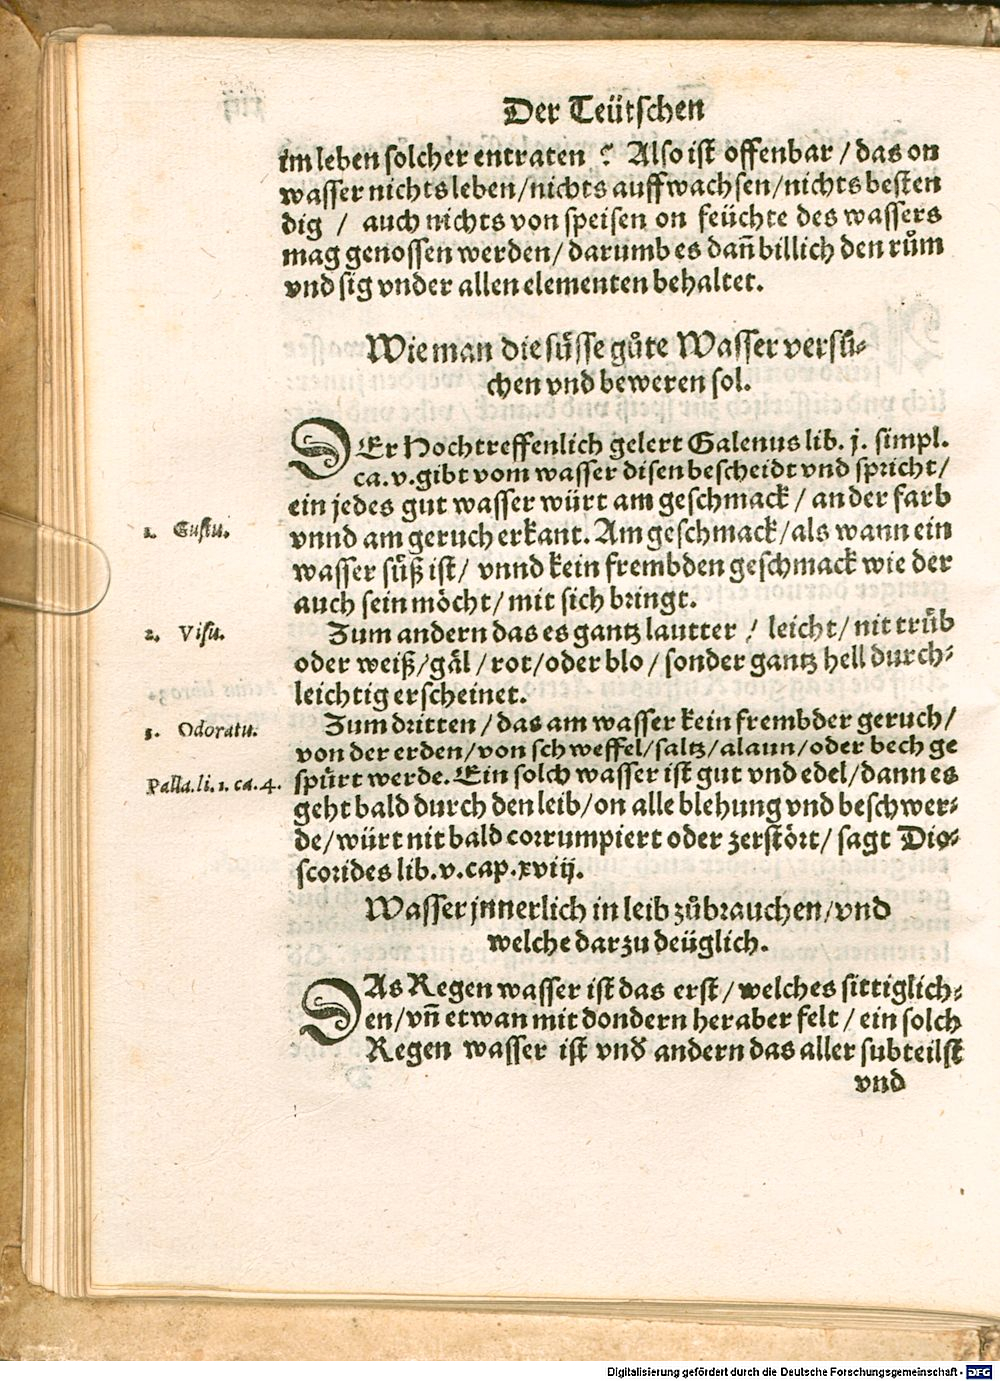 Der Teütschen
im leben solcher entraten ? Also ist offenbar / das on
wasser nichts leben / nichts auffwachsen / nichts besten
dig / auch nichts von speisen on feüchte des wassers
mag genossen werden / darumb es dañ billich den rům
vnd sig vnder allen elementen behaltet.
Wie man die süsse gůte Wasser versů-
chen vnd beweren sol.
DEr Hochtreffenlich gelert Galenus lib. j. simpl.
ca. v. gibt vom wasser disen bescheidt vnd spricht /
ein jedes gut wasser würt am geschmack / an der farb
1. Gustu.
vnnd am geruch erkant. Am geschmack / als wann ein
wasser süß ist / vnnd kein frembden geschmack wie der
auch sein möcht / mit sich bringt.
2. Visu.
Zum andern das es gantz lautter / leicht / nit trüb
oder weiß / gäl / rot / oder blo / sonder gantz hell durch-
leichtig erscheinet.
3. Odoratu.
Zum dritten / das am wasser kein frembder geruch /
von der erden / von schweffel / saltz / alaun / oder bech ge
Palla. li. 1. ca. 4.
spürt werde. Ein solch wasser ist gut vnd edel / dann es
geht bald durch den leib / on alle blehung vnd beschwer-
de / würt nit bald corrumpiert oder zerstört / sagt Dio-
scorides lib. v. cap. xviij.
Wasser jnnerlich in leib zůbrauchen / vnd
welche darzu deüglich.
DAs Regen wasser ist das erst / welches sittiglich-
en / vñ etwan mit dondern heraber felt / ein solch
Regen wasser ist vnd' andern das aller subteilst
vnd
Digitalisierung gefördert durch die Deutsche Forschungsgemeinschaft - DFG